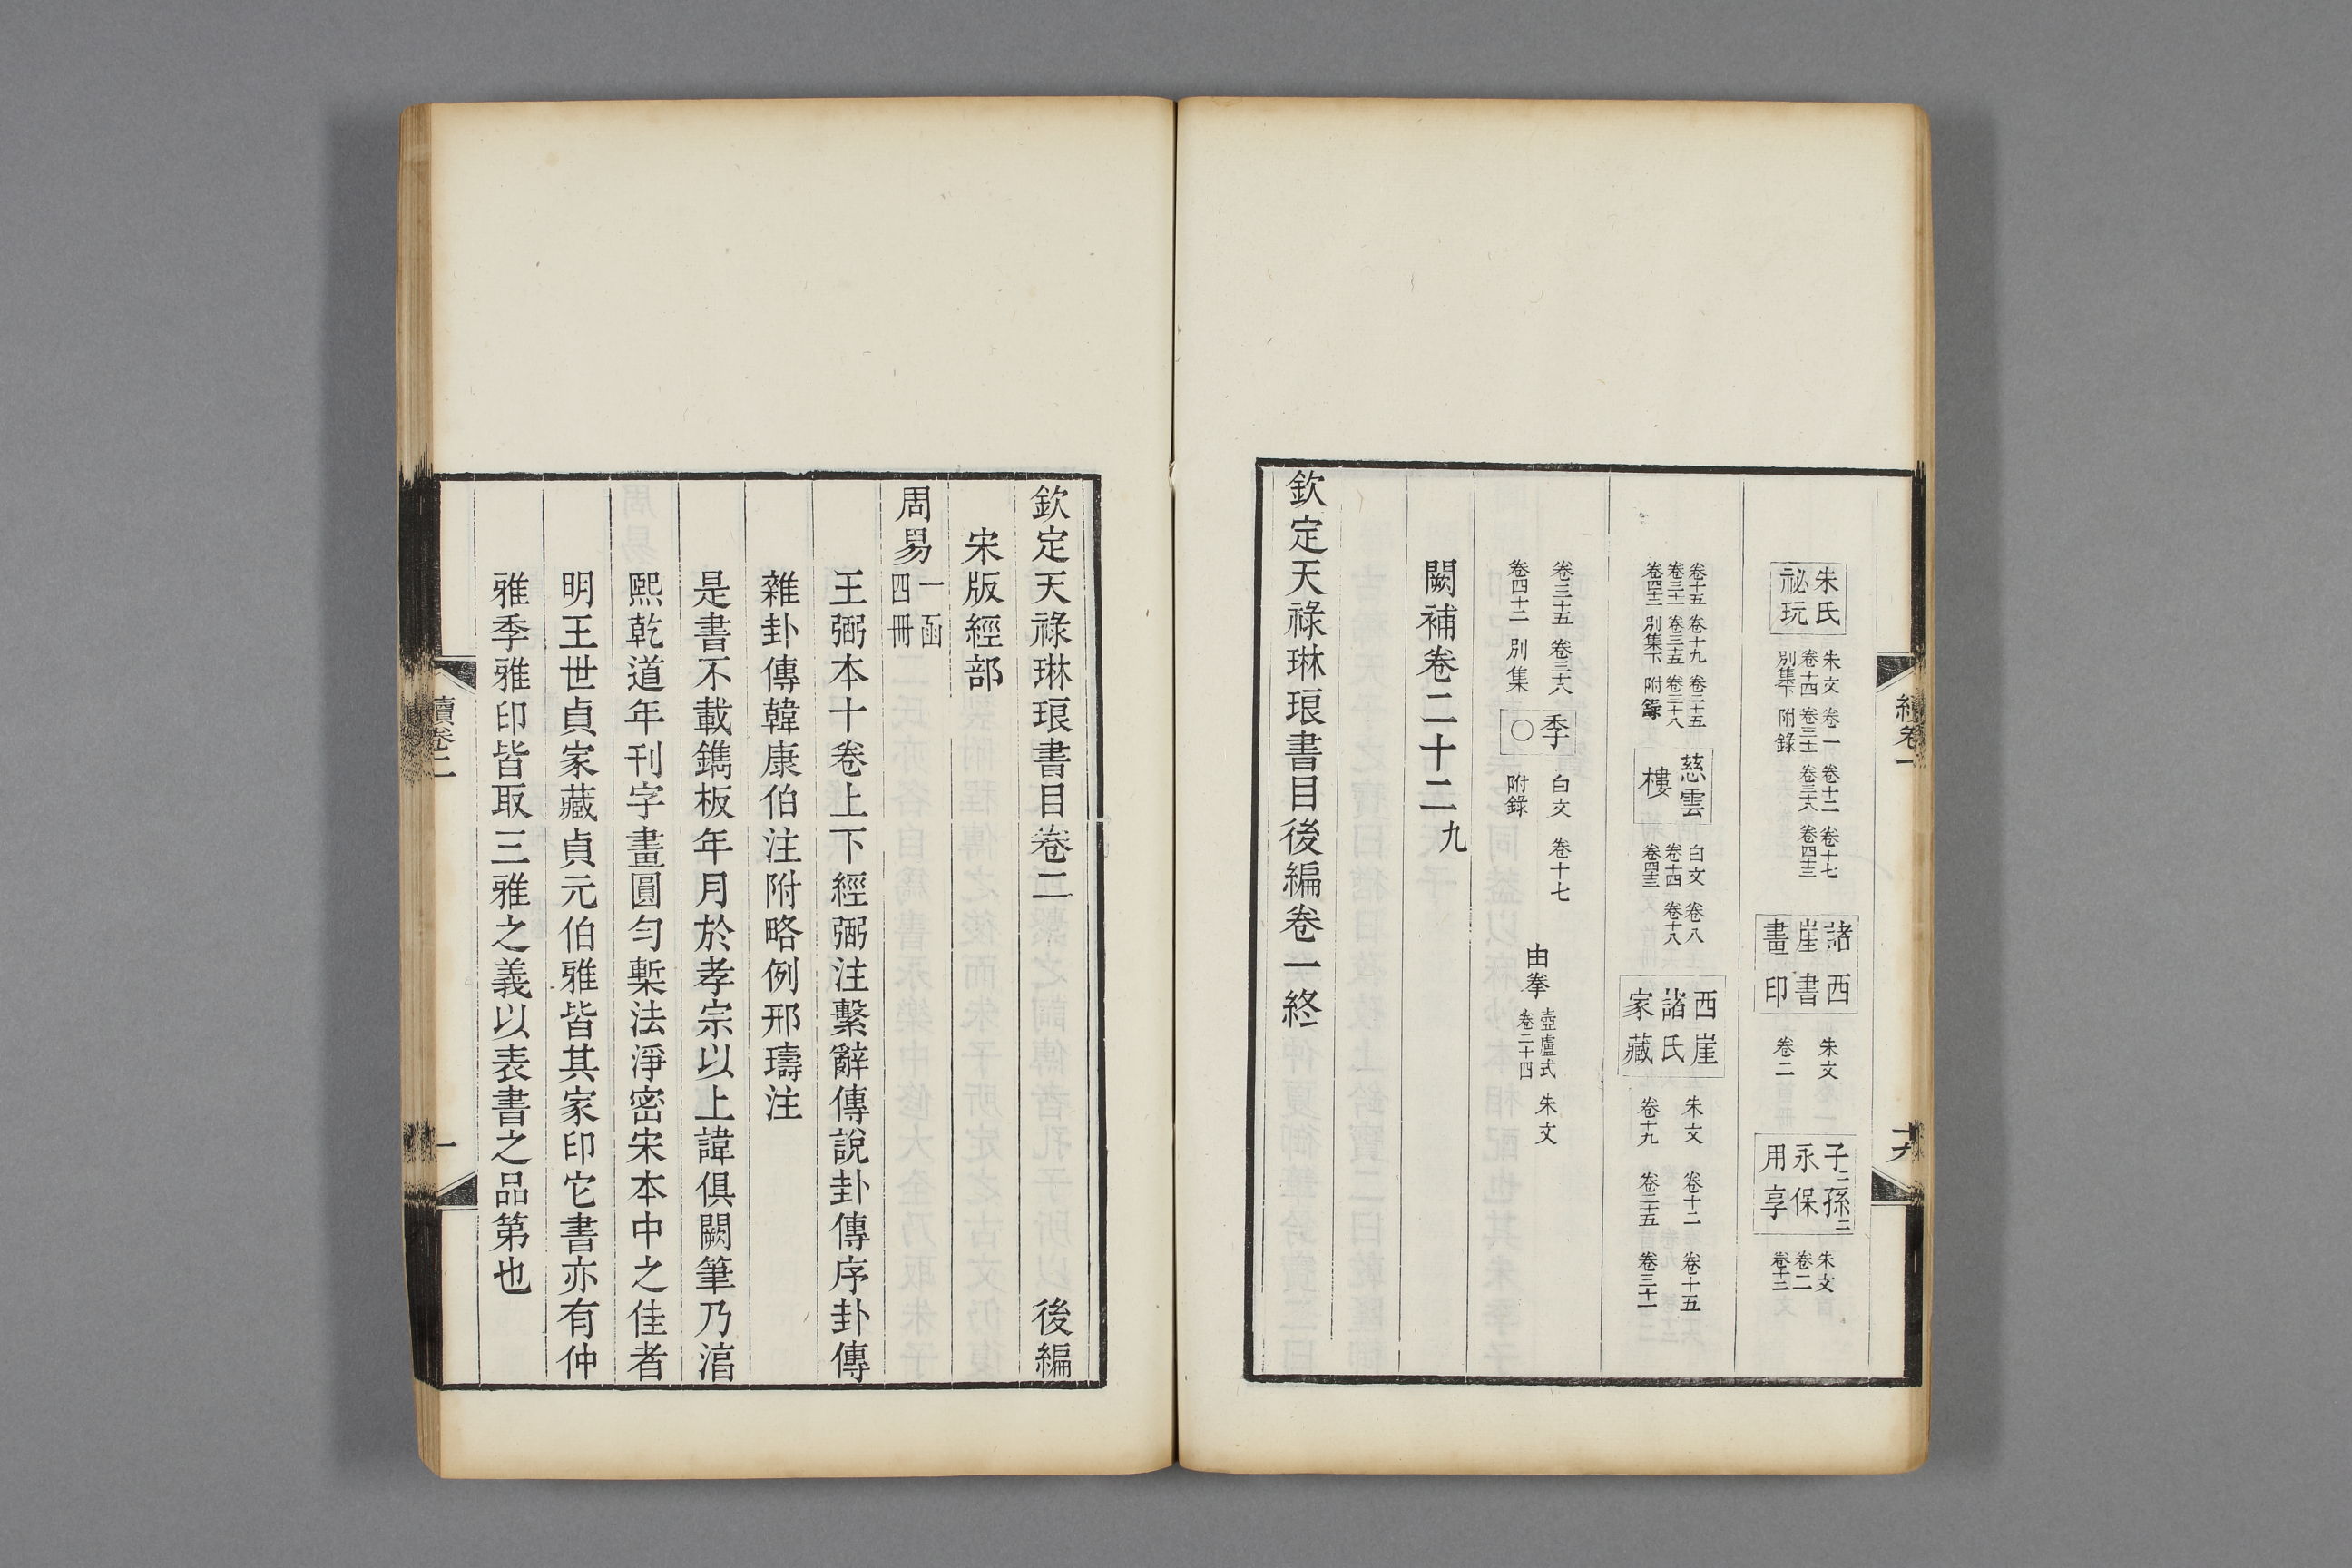 朱氏
祕玩
朱文 卷一 卷十二 卷十七
卷十四 卷三十一 卷三十六 卷四十三
別集下 附錄
諸西
崖書
畫印
朱文
卷二
子二孫二
永保
用享
朱文
卷二
卷十二
卷十五 卷十九 卷二十五
卷三十一 卷三十五 卷三十八
卷四十二 別集下 附錄
慈雲
樓
白文 卷八
卷十四 卷十八
卷四十三
西崖
諸氏
家藏
朱文 卷十二 卷十五
卷十九 卷二十五 卷三十一
卷三十五 卷三十八
卷四十二 別集
季
○
白文 卷十七
附錄
由拳
壺盧式
卷二十四
朱文
闕補卷二十二九
欽定天祿琳琅書目後編卷一終
續卷一
十九
欽定天祿琳琅書目卷二 後編
宋版經部
周易一函四冊
王弼本十卷上下經弼注繫辭傳說卦傳序卦傳
雜卦傳韓康伯注附略例邢璹注
是書不載鐫板年月於孝宗以上諱俱闕筆乃淳
熙乾道年刊字畫圓勻槧法淨密宋本中之佳者
明王世貞家藏貞元伯雅皆其家印它書亦有仲
雅季雅印皆取三雅之義以表書之品第也
續卷二
一